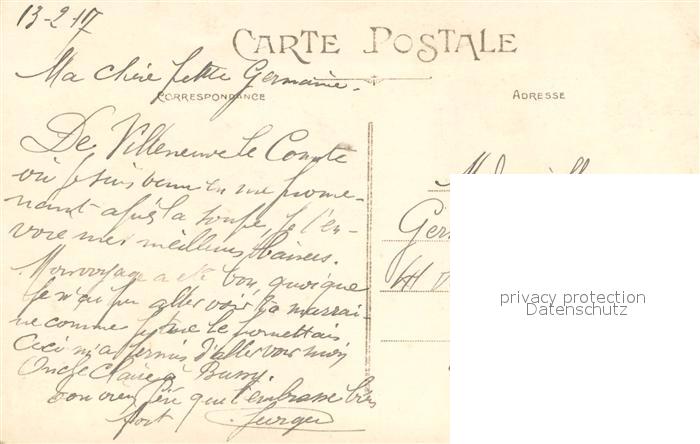 13-2-17
CARTE POSTALE
Ma chère petite Germaine.
CORRESPONDANCE
ADRESSE
De Villeneuve le Comte
où je suis venu en me prome-
nant après la soupe, je t'en-
voie mes meilleurs baisers.
Mon voyage a été bon, quoique
je n'ai pu aller voir ta marrai-
ne comme je me le promettais
Ceci m'a permis d'aller voir mon
Oncle Claire à Bussy.
Ton vieux père que t'embrasse bien
fort
Germ
privacy protection
Datenschutz